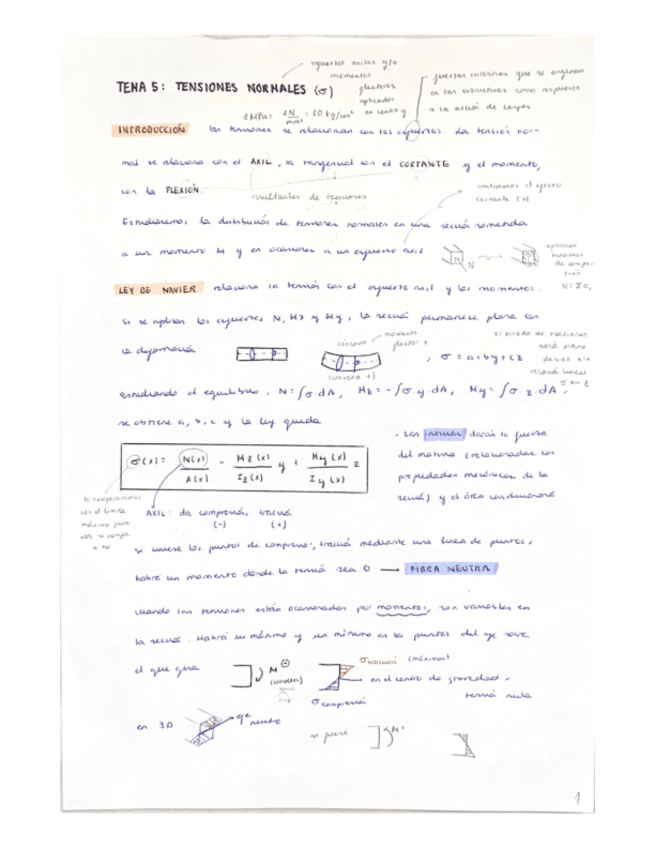 esfuerzos axiles y/o
momentos
flectores
aplicados
en centro g
fuerzas internas que se originan
en las estructuras como respuesta
a la acción de cargas
TEMA 5: TENSIONES NORMALES (σ)
1 MPa = 1N/mm² = 10 kg/cm²
INTRODUCCIÓN las tensiones se relacionan con los esfuerzos. La tensión nor-
mal se relaciona con el AXIL, la tangencial con el CORTANTE y el momento,
con la FLEXIÓN.
resultantes de tensiones
cortante (x)
Estudiaremos la distribución de tensiones normales en una sección sometida
a un momento M y en ocasiones a un esfuerzo axil
N
aparecen
tensiones
de compre-
sión
LEY DE NAVIER relaciona la tensión con el esfuerzo axil y los momentos.
Si se aplican los esfuerzos N, Mz y My, la sección permanece plana con
la deformación
momento
flector +
(convexa +)
, σ = a+by+cz
el estado de tensiones
será plano
debido a la
sección lineal
estudiando el equilibrio, N=∫σ.dA, Mz=-∫σ.y.dA, My=∫σ.z.dA,
se obtiene a, b, c y la ley queda
σ(x) = N(x)/A(x) - Mz(x)/Iz(x) y + My(x)/Iy(x) z
· Las inercias darán la fuerza
del material (relacionadas con
propiedades mecánicas de la
sección) y el área condicionará
lo comparamos
con el límite
máximo para
ver si rompe
o no
AXIL: da compresión, tracción
(-) (+)
si uniese los puntos de compresión, tracción mediante una línea de puntos,
habrá un momento donde la tensión sea 0 → FIBRA NEUTRA
cuando las tensiones están ocasionadas por momentos, son variables en
la sección. Habrá un máximo y un mínimo en los puntos del eje sobre
el que gira
M ⊖
σ tracción (máximas)
en el centro de gravedad,
tensión nula
σ compresión
en 3D
eje neutro
si fuese
M⁺
1